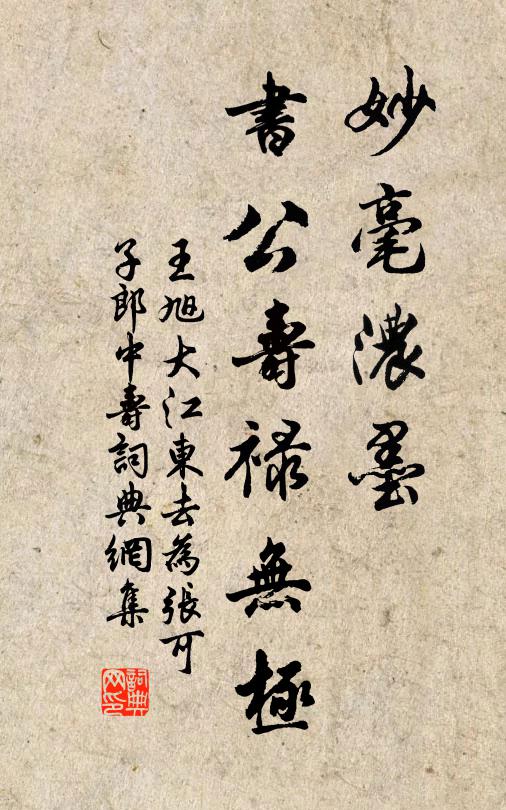 妙毫濃墨
書公壽祿無極
王旭大江東去為張可
子郎中壽詞典網集
詞典
网印